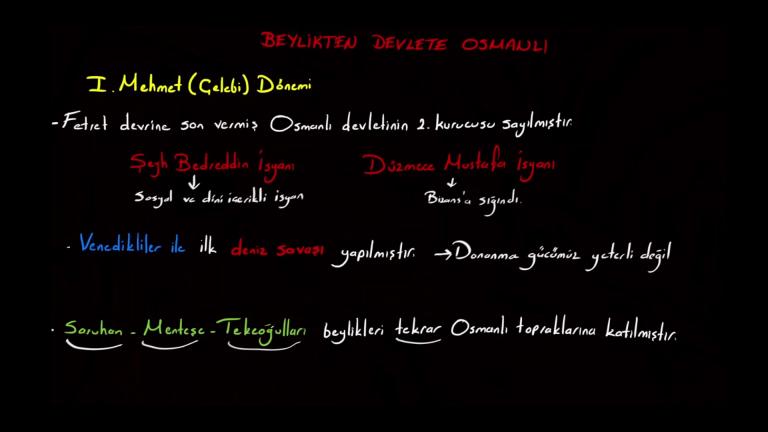 BEYLİKTEN DEVLETE OSMANLI
I. Mehmet (Çelebi) Dönemi
- Fetret devrine son vermiş Osmanlı devletinin 2. kurucusu sayılmıştır.
Şeyh Bedreddin İsyanı Düzmece Mustafa İsyanı
↓ ↓
Sosyal ve dini içerikli isyan Bizans'a sığındı.
· Venedikliler ile ilk deniz savaşı yapılmıştır. → Donanma gücümüz yeterli değil
· Saruhan - Menteşe - Tekeoğulları beylikleri tekrar Osmanlı topraklarına katılmıştır.